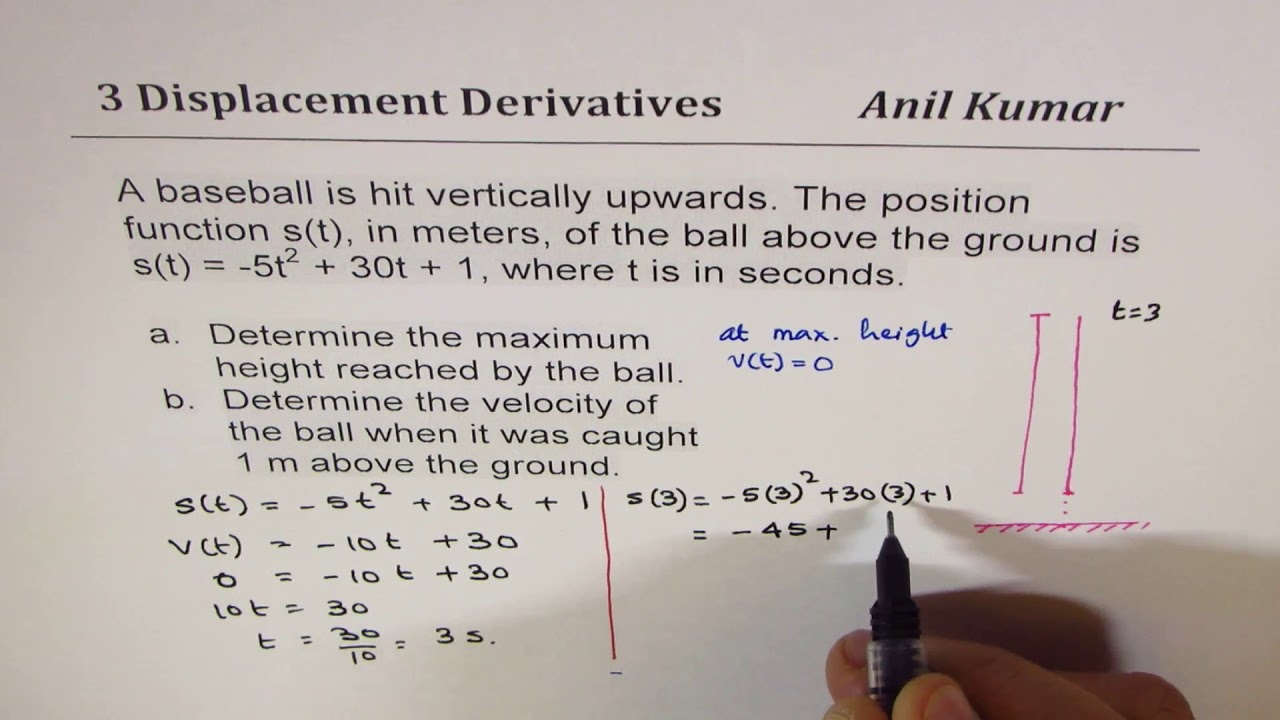 3 Displacement Derivatives Anil Kumar
A baseball is hit vertically upwards. The position
function s(t), in meters, of the ball above the ground is
s(t) = -5t² + 30t + 1, where t is in seconds.
a. Determine the maximum
height reached by the ball.
b. Determine the velocity of
the ball when it was caught
1 m above the ground.
at max. height
v(t) = 0
t=3
s(t) = -5t² + 30t + 1
v(t) = -10t + 30
0 = -10t + 30
10t = 30
t = 30/10 = 3 s.
s(3) = -5(3)² + 30(3) + 1
= -45 +